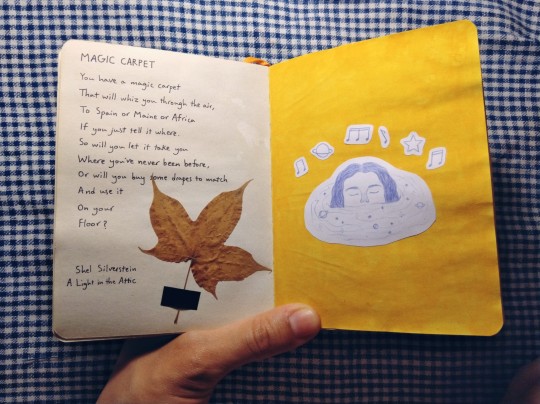 MAGIC CARPET
You have a magic carpet
That will whiz you through the air,
To Spain or Maine or Africa
If you just tell it where.
So will you let it take you
Where you've never been before,
Or will you buy some drapes to match
And use it
On your
Floor?
Shel Silverstein
A Light in the Attic